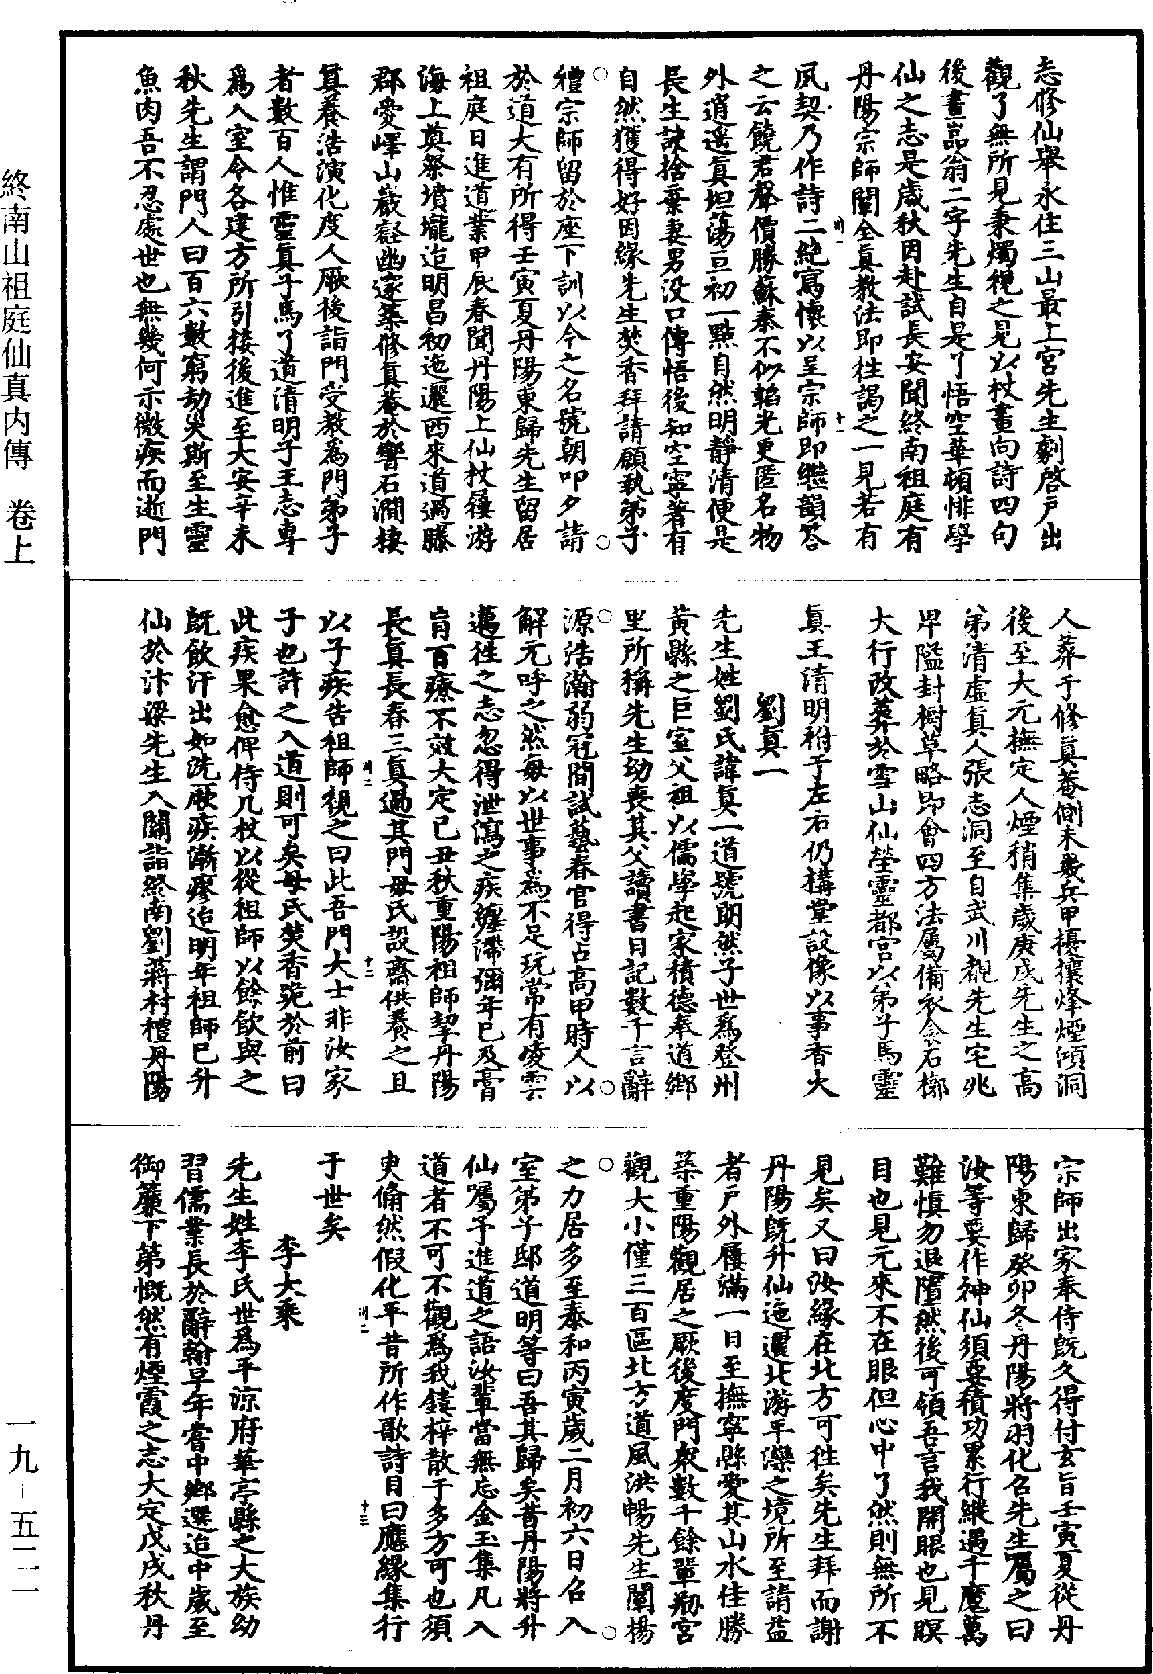 志修仙舉永住三山最上宮先生劇啓戶出
觀了無所見秉燭視之見以杖畫向詩四句
後畫昷翁二字先生自是了悟空華頓悱學
仙之志是歲秋因赴試長安聞終南祖庭有
丹陽宗師闡全真教法即往謁之一見若有
夙契乃作詩二絕寫懷以呈宗師即繼韻答
之云饒君聲價勝蘇秦不似韜光更匿名物
外逍遥真坦蕩亘初一點自然明靜清便是
長生訣捨棄妻男没口傳悟後知空寧著有
自然獲得好因緣先生焚香拜請願執弟子
禮宗師留於座下訓以今之名號朝叩夕請
於道大有所得壬寅夏丹陽東歸先生留居
祖庭日進道業甲辰春聞丹陽上仙杖屨游
海上奠祭墳壠迨明昌初迤邐西來道過滕
郡愛嶧山巖壑幽邃築修真菴於響石澗棲
真養浩演化度人厥後詣門受教爲門弟子
者數百人惟靈真子馬了道清明子王志專
爲入室令各建方所引接後進至大安辛未
秋先生謂門人曰百六數窮劫災斯至生靈
魚肉吾不忍處世也無幾何示微疾而逝門
人葬于修真菴側未幾兵甲擾攘烽煙澒洞
後至大元撫定人煙稍集歲庚戌先生之高
弟清虛真人張志洞至自武川觀先生宅兆
卑隘封樹草略即會四方法屬備衣衾石槨
大行改葬於雪山仙塋靈都宮以弟子馬靈
真王清明祔于左右仍構堂設像以事香火
劉真一
先生姓劉氏諱真一道號朗然子世爲登州
黄縣之巨室父祖以儒學起家積德奉道鄉
里所稱先生幼喪其父讀書日記數千言辭
源浩瀚弱冠間試藝春官得占高甲時人以
解元呼之然每以世事爲不足玩常有凌雲
邁往之志忽得泄瀉之疾纏滯彌年已及膏
肓百療不效大定己丑秋重陽祖師挈丹陽
長真長春三真過其門母氏設齋供養之且
以子疾告祖師視之曰此吾門大士非汝家
子也許之入道則可矣母氏焚香跪於前曰
此疾果愈俾侍几杖以從祖師以餘飲與之
既飲汗出如洗厥疾漸瘳迨明年祖師已升
仙於汴梁先生入關詣終南劉蔣村禮丹陽
宗師出家奉侍既久得付玄旨壬寅夏從丹
陽東歸癸卯冬丹陽將羽化召先生屬之曰
汝等要作神仙須要積功累行縱遇千魔萬
難慎勿退墮然後可領吾言我開眼也見瞑
目也見元來不在眼但心中了然則無所不
見矣又曰汝緣在北方可往矣先生拜而謝
丹陽既升仙迤邐北游平灤之境所至請益
者戶外屨滿一日至撫寧縣愛其山水佳勝
築重陽觀居之厥後度門衆數千餘輩剏宮
觀大小僅三百區北方道風洪暢先生闡揚
之力居多至泰和丙寅歲二月初六日召入
室弟子邸道明等曰吾其歸矣昔丹陽將升
仙囑予進道之語汝輩當無忘金玉集凡入
道者不可不觀爲我鋟梓散于多方可也須
臾翛然假化平昔所作歌詩目曰應緣集行
于世矣
李大乘
先生姓李氏世爲平涼府華亭縣之大族幼
習儒業長於辭翰早年嘗中鄉選迨中歲至
御簾下第慨然有煙霞之志大定戊戌秋丹
終南山祖庭仙真内傳　卷上
一九－五二二